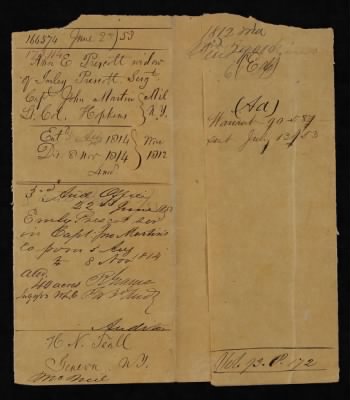 166574 June 22/53
Ann E Prescott widow
of Imley Prescott Sergt
Capt John Martin Mil
Lt. Col. Hopkins N.Y.
Entd Aug 1814 War
Dis 8 Nov 1814 1812
Amd
3rd Aud Office
22nd June
Emley Prescot ser
in Capt. Jno Martins
Co from 5 Aug
to 8 Nov 1814
40 acres
Auditor
H. N. Teall
Geneva N.Y.
McNeil
1812 War
(Aa)
Warrant 90-589
sent July 13 1853
Vol. 93. P. 172